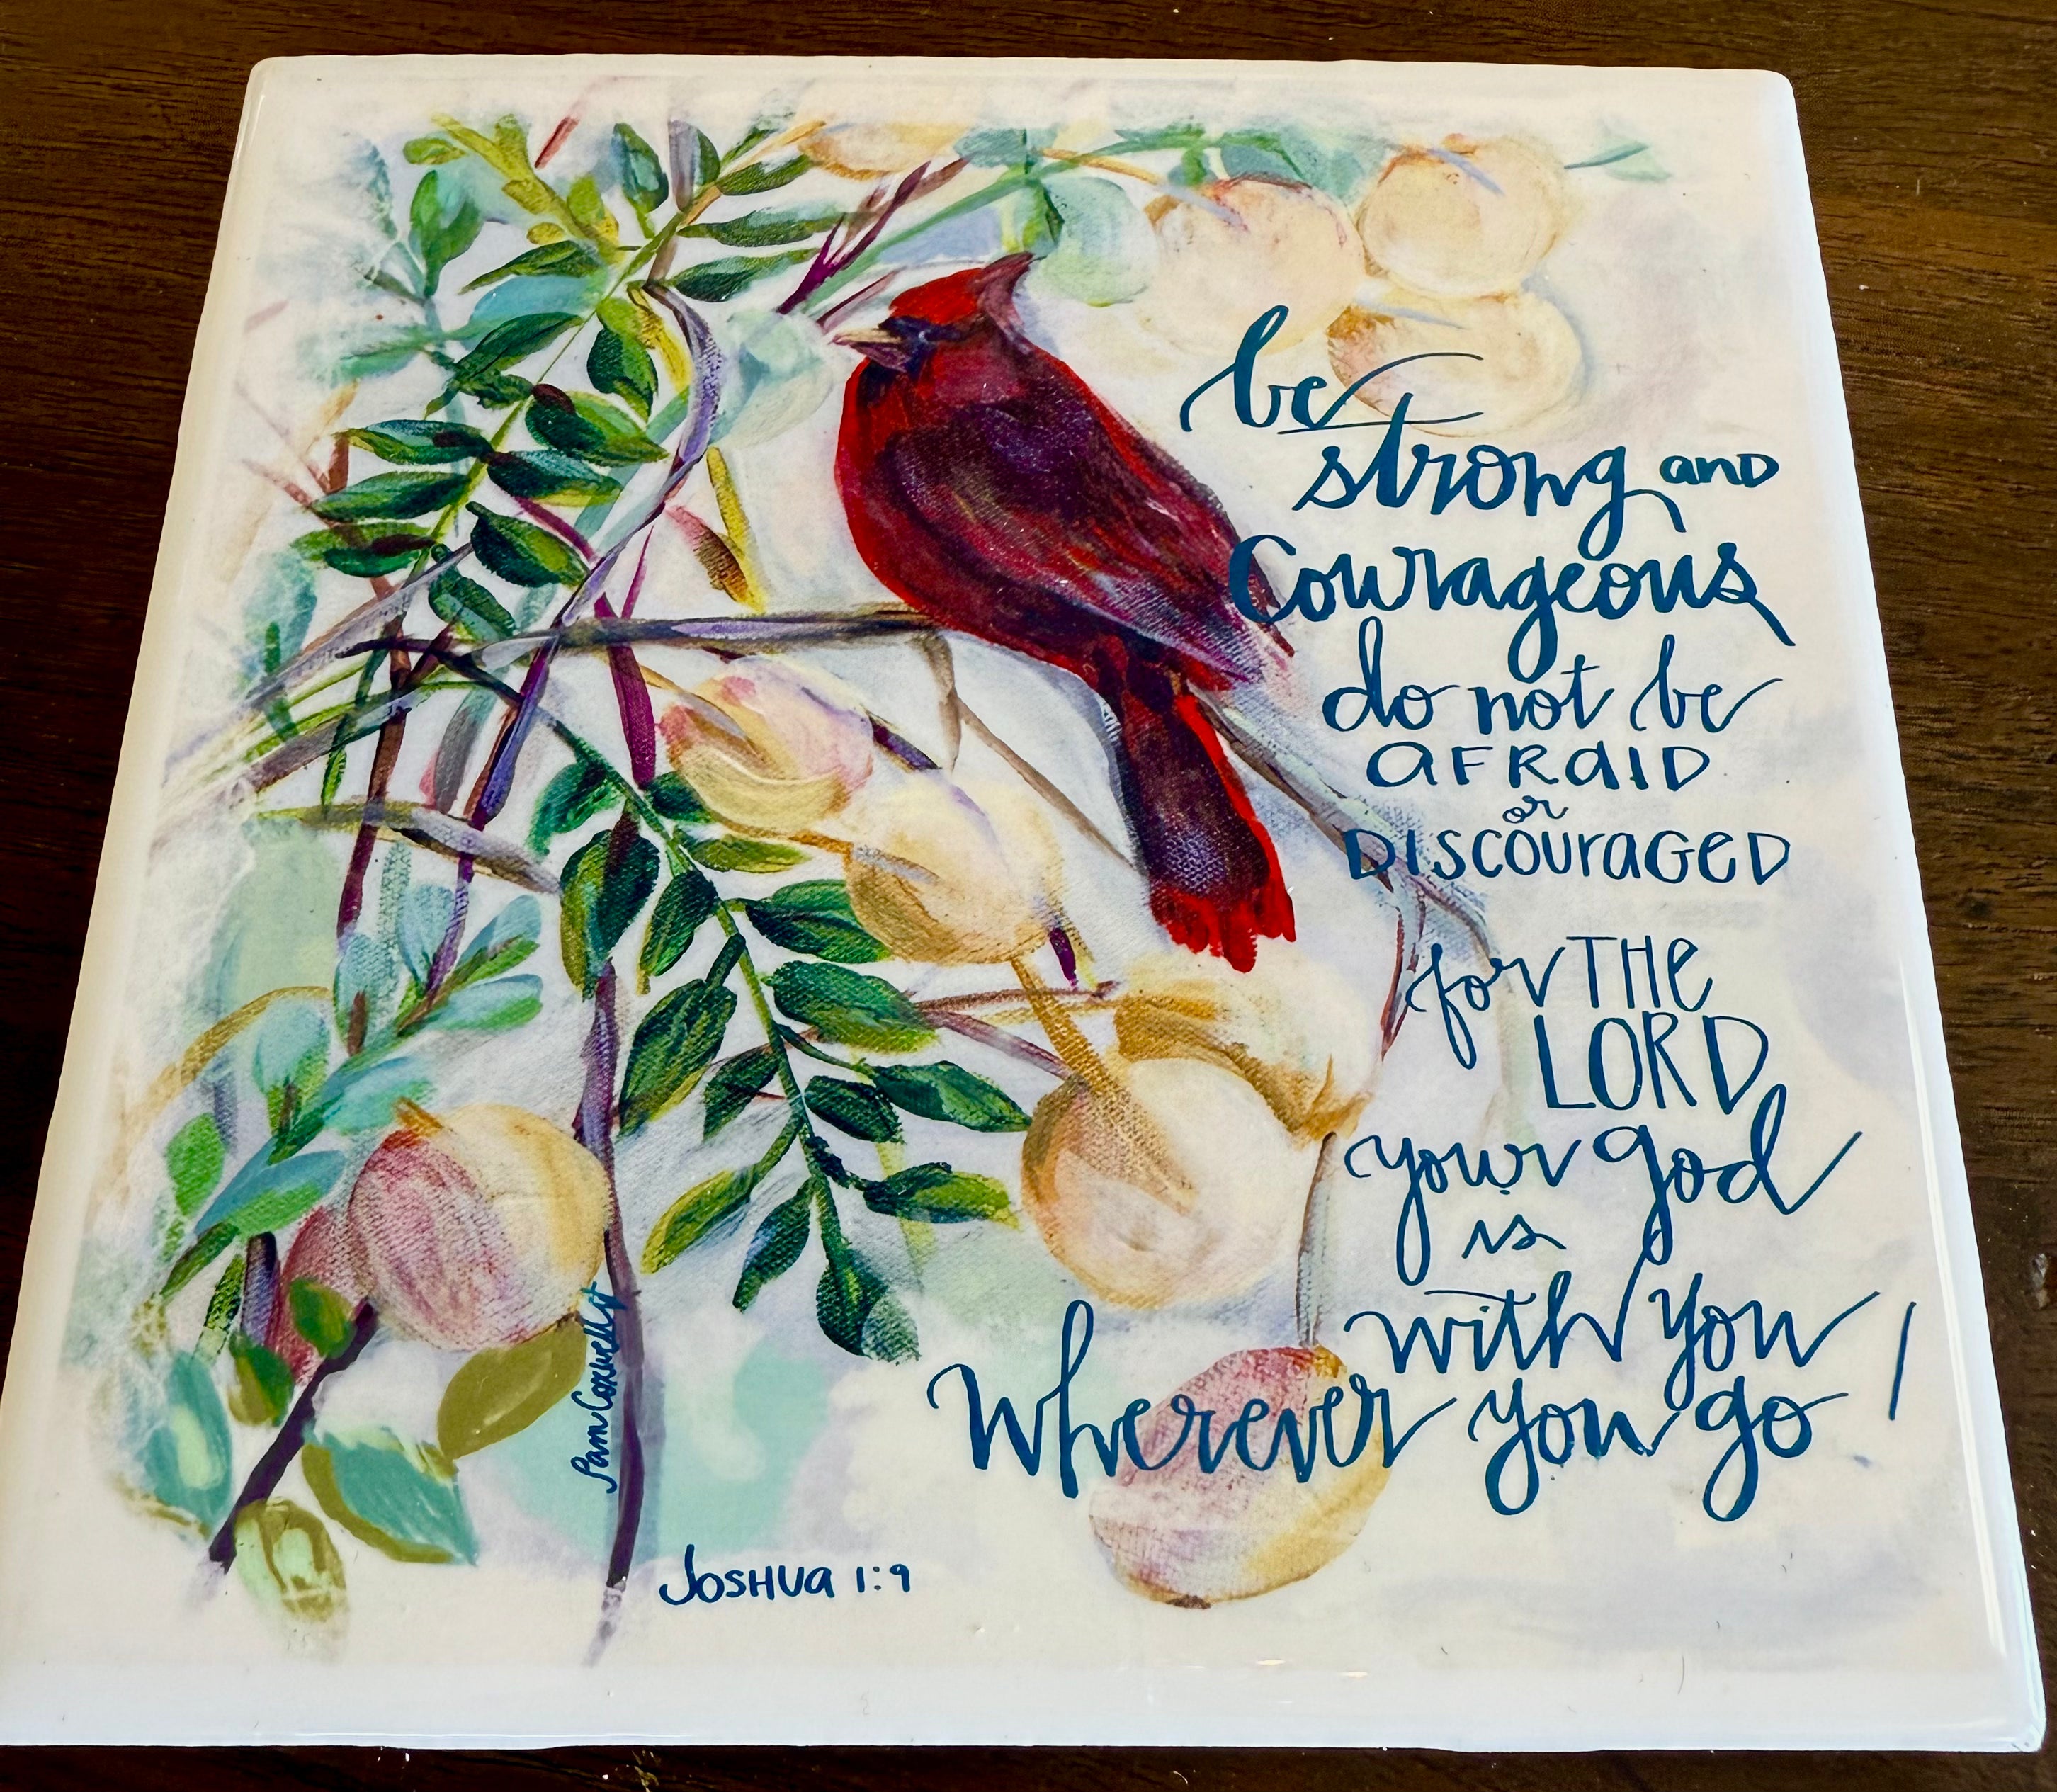 be
strong and
Courageous
do not be
AFRAID
or
DISCOURAGED
for THE
LORD
your God
is
with you
Wherever you go!
Pam Coxwell
JOSHUA 1:9